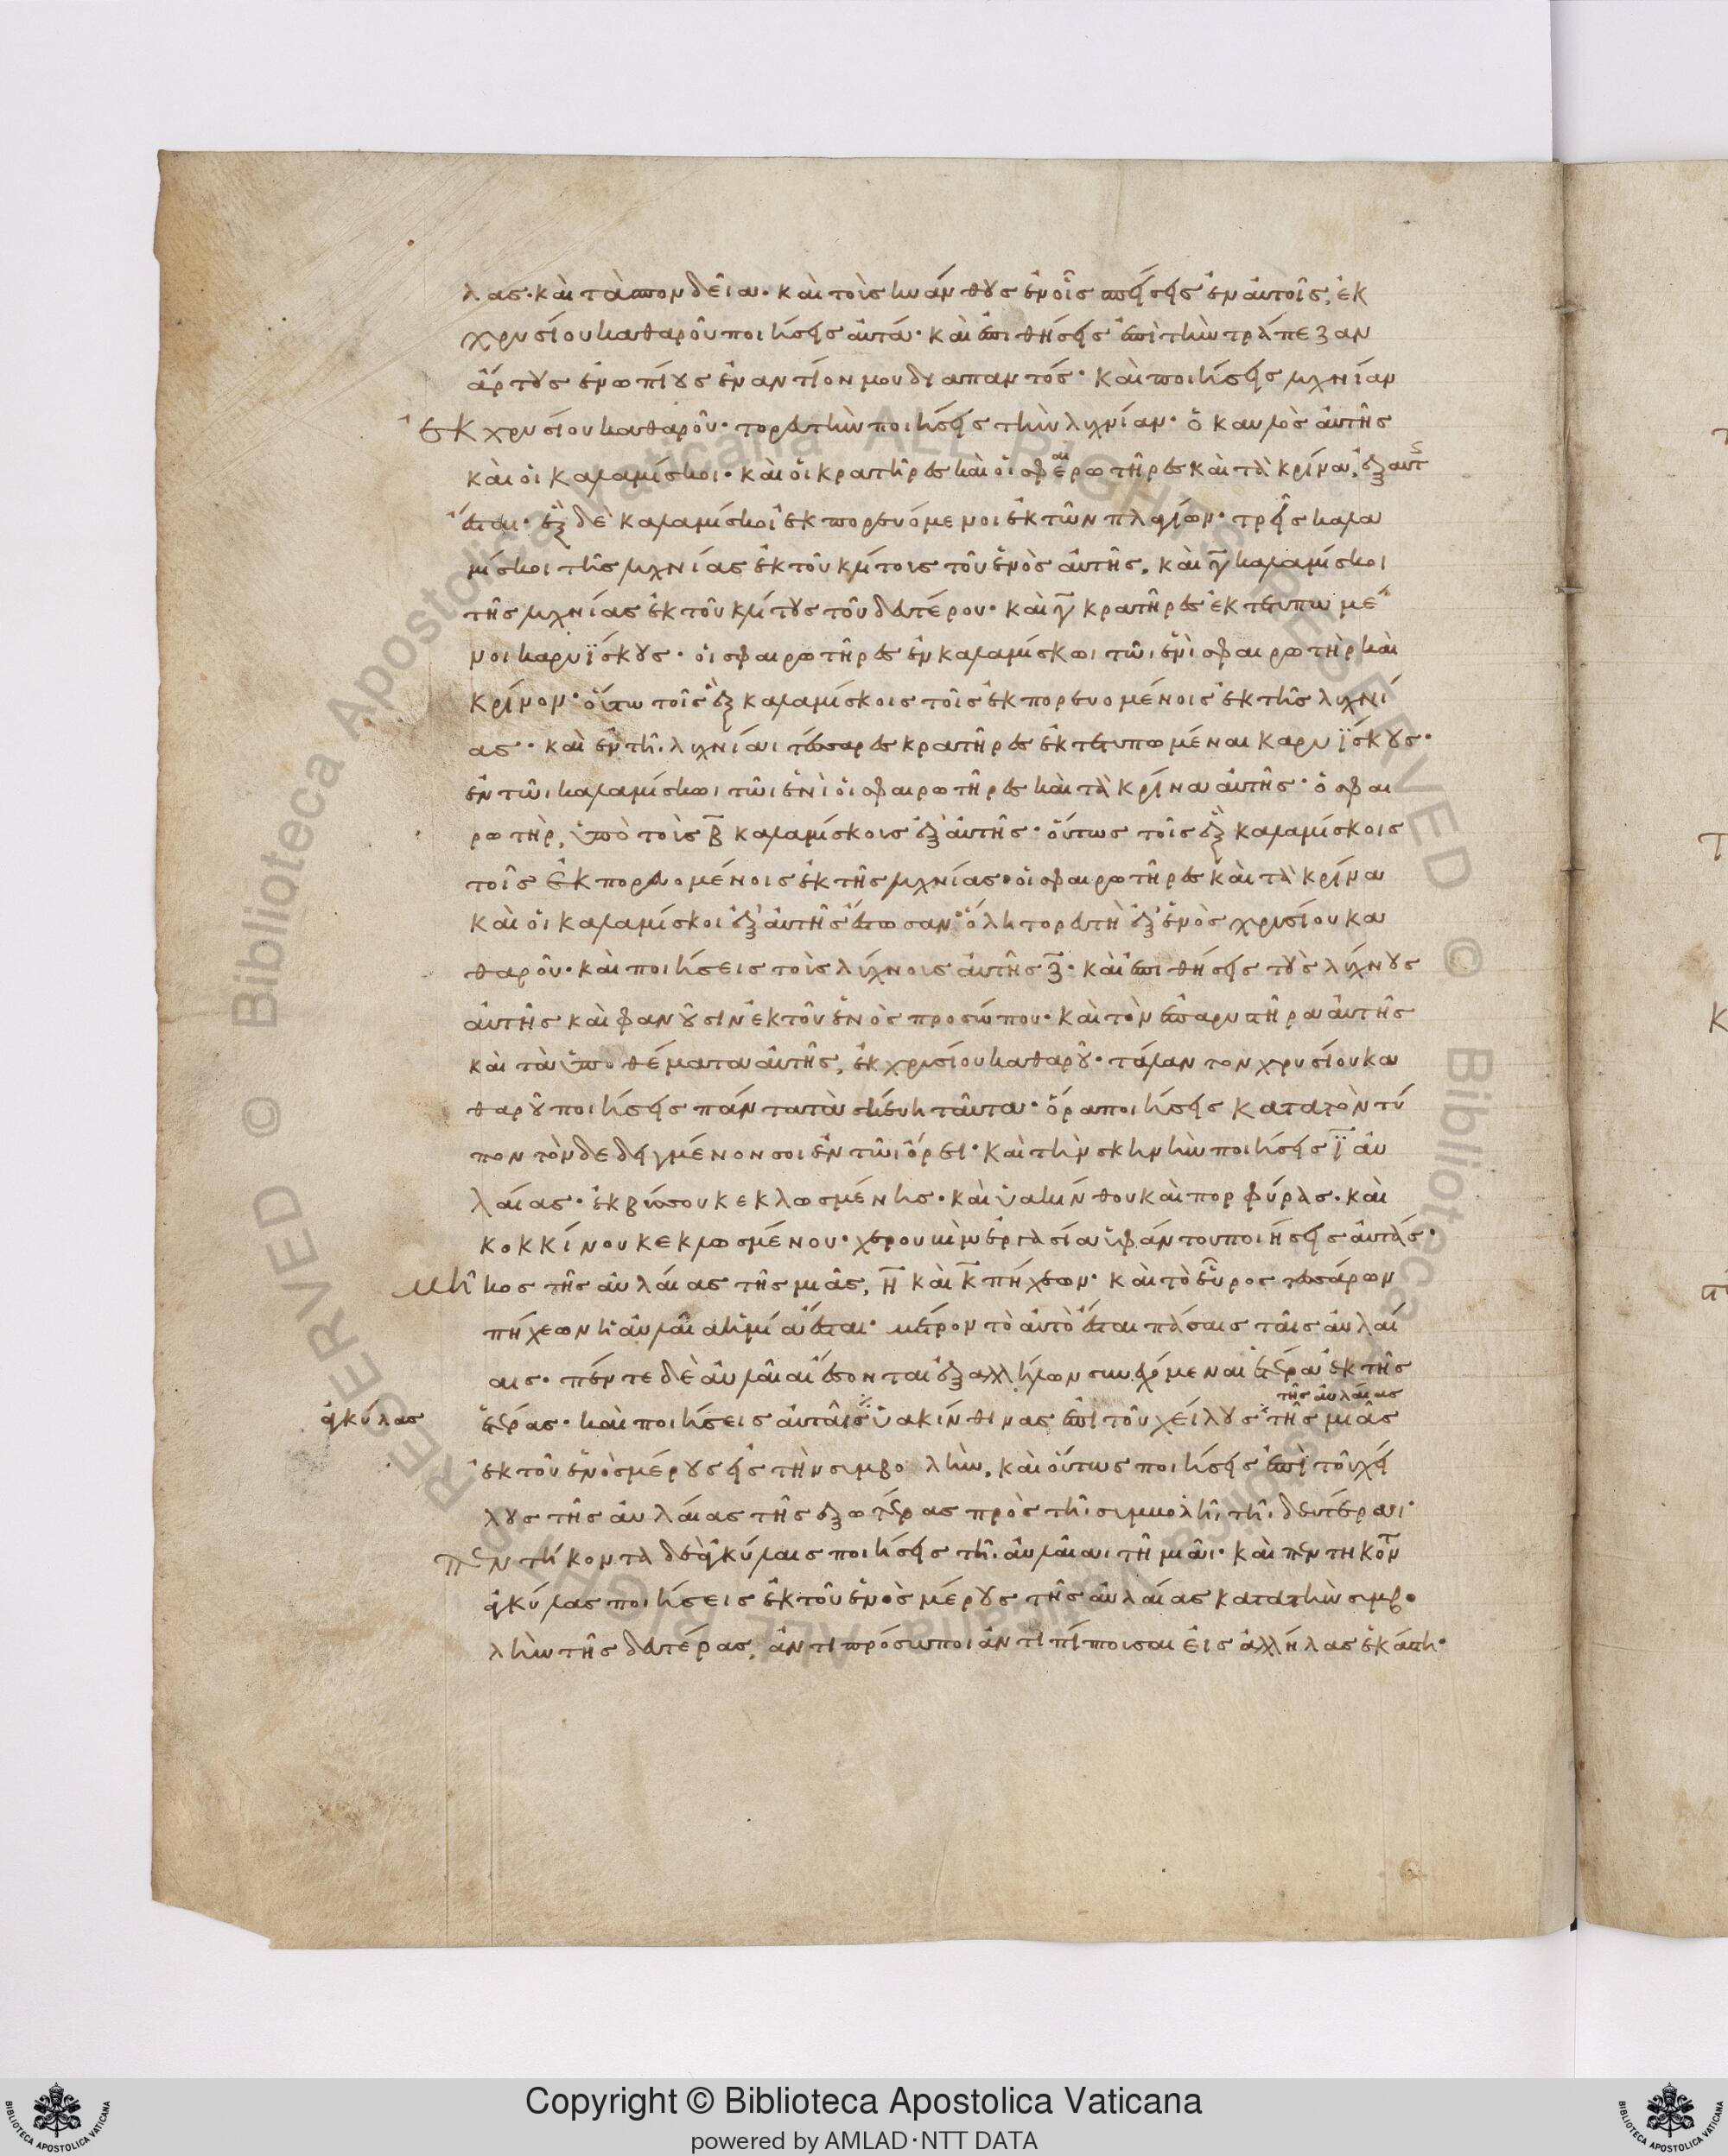 λας· καὶ τὰ σπονδεῖα· καὶ τοὺς κυάνθους ἐν οἷς σπείσεις ἐν αὐτοῖς, ἐκ
χρυσίου καθαροῦ ποιήσεις αὐτά· καὶ ἐπιθήσεις ἐπὶ τὴν τράπεζαν
ἄρτους ἐνωπίους ἐναντίον μου διαπαντός· καὶ ποιήσεις λυχνίαν
ἐκ χρυσίου καθαροῦ· τορευτὴν ποιήσεις τὴν λυχνίαν· ὁ καυλὸς αὐτῆς
καὶ οἱ καλαμίσκοι· καὶ οἱ κρατῆρες καὶ οἱ σφαιρωτῆρες καὶ τὰ κρίνα, ἐξ αὐτῆς
ἔσται· ἓξ δὲ καλαμίσκοι ἐκπορευόμενοι ἐκ τῶν πλαγίων· τρεῖς καλα
μίσκοι τῆς λυχνίας ἐκ τοῦ κλίτους τοῦ ἑνὸς αὐτῆς, καὶ γ̄ καλαμίσκοι
τῆς λυχνίας ἐκ τοῦ κλίτους τοῦ δευτέρου· καὶ γ̄ κρατῆρες ἐκτετυπωμέ
νοι καρυΐσκους· οἱ σφαιρωτῆρες ἐν καλαμίσκωι τῶι ἑνὶ σφαιρωτὴρ καὶ
κρίνον· οὕτω τοῖς ἓξ καλαμίσκοις τοῖς ἐκπορευομένοις ἐκ τῆς λυχνί
ας· καὶ ἐν τῆι λυχνίαι τέσσαρες κρατῆρες ἐκτετυπωμέναι καρυΐσκους·
ἐν τῶι καλαμίσκωι τῶι ἑνὶ οἱ σφαιρωτῆρες καὶ τὰ κρίνα αὐτῆς· ὁ σφαι
ρωτὴρ, ὑπὸ τοὺς β̄ καλαμίσκους ἐξ αὐτῆς· οὕτως τοῖς ἓξ καλαμίσκοις
τοῖς ἐκπορευομένοις ἐκ τῆς λυχνίας· οἱ σφαιρωτῆρες καὶ τὰ κρίνα
καὶ οἱ καλαμίσκοι ἐξ αὐτῆς ἔστωσαν· ὅλη τορευτὴ ἐξ ἑνὸς χρυσίου κα
θαροῦ· καὶ ποιήσεις τοὺς λύχνους αὐτῆς ζ̄· καὶ ἐπιθήσεις τοὺς λύχνους
αὐτῆς καὶ φανοῦσιν ἐκ τοῦ ἑνὸς προσώπου· καὶ τὸν ἐπαρυστῆρα αὐτῆς
καὶ τὰ ὑποθέματα αὐτῆς, ἐκ χρυσίου καθαροῦ· τάλαντον χρυσίου κα
θαροῦ ποιήσεις πάντα τὰ σκεύη ταῦτα· ὅρα ποιήσεις κατὰ τὸν τύ
πον τὸν δεδειγμένον σοι ἐν τῶι ὄρει· καὶ τὴν σκηνὴν ποιήσεις ϊ̄ αὐ
λαίας· ἐκ βύσσου κεκλωσμένης· καὶ ὑακίνθου καὶ πορφύρας· καὶ
κοκκίνου κεκλωσμένου· χερουβὶμ ἐργασία ὑφάντου ποιήσεις αὐτάς·
μῆκος τῆς αὐλαίας τῆς μιᾶς, η̄ καὶ κ̄ πήχεων· καὶ τὸ εὖρος τεσσάρων
πήχεων ἡ αὐλαῖα ἡ μία ἔσται· μέτρον τὸ αὐτὸ ἔσται πάσαις ταῖς αὐλαί
αις· πέντε δὲ αὐλαῖαι ἔσονται ἐξ αλλήλων συνεχόμεναι ἑτέρα ἐκ τῆς
ἀγκύλας ἑτέρας· καὶ ποιήσεις αὐταῖς ὑακινθίνας ἐπὶ τοῦ χείλους τῆς αὐλαίας τῆς μιᾶς
ἐκ τοῦ ἑνὸς μέρους εἰς τὴν συμβολὴν, καὶ οὕτως ποιήσεις ἐπὶ τοῦ χεί
λους τῆς αὐλαίας τῆς ἐξωτέρας πρὸς τῆι συμβολῆι τῆι δευτέραι·
πεντήκοντα δὲ ἀγκύλαις ποιήσεις τῆι αὐλαίαι τῆ μιᾶι· καὶ πεντηκοντ
ἀγκύλας ποιήσεις ἐκ τοῦ ἑνὸς μέρους τῆς αὐλαίας κατὰ τὴν συμβο
λὴν τῆς δευτέρας, ἀντιπρόσωποι ἀντιπίπτουσαι εἰς ἀλλήλας ἑκάστη·
Copyright © Biblioteca Apostolica Vaticana
powered by AMLAD·NTT DATA